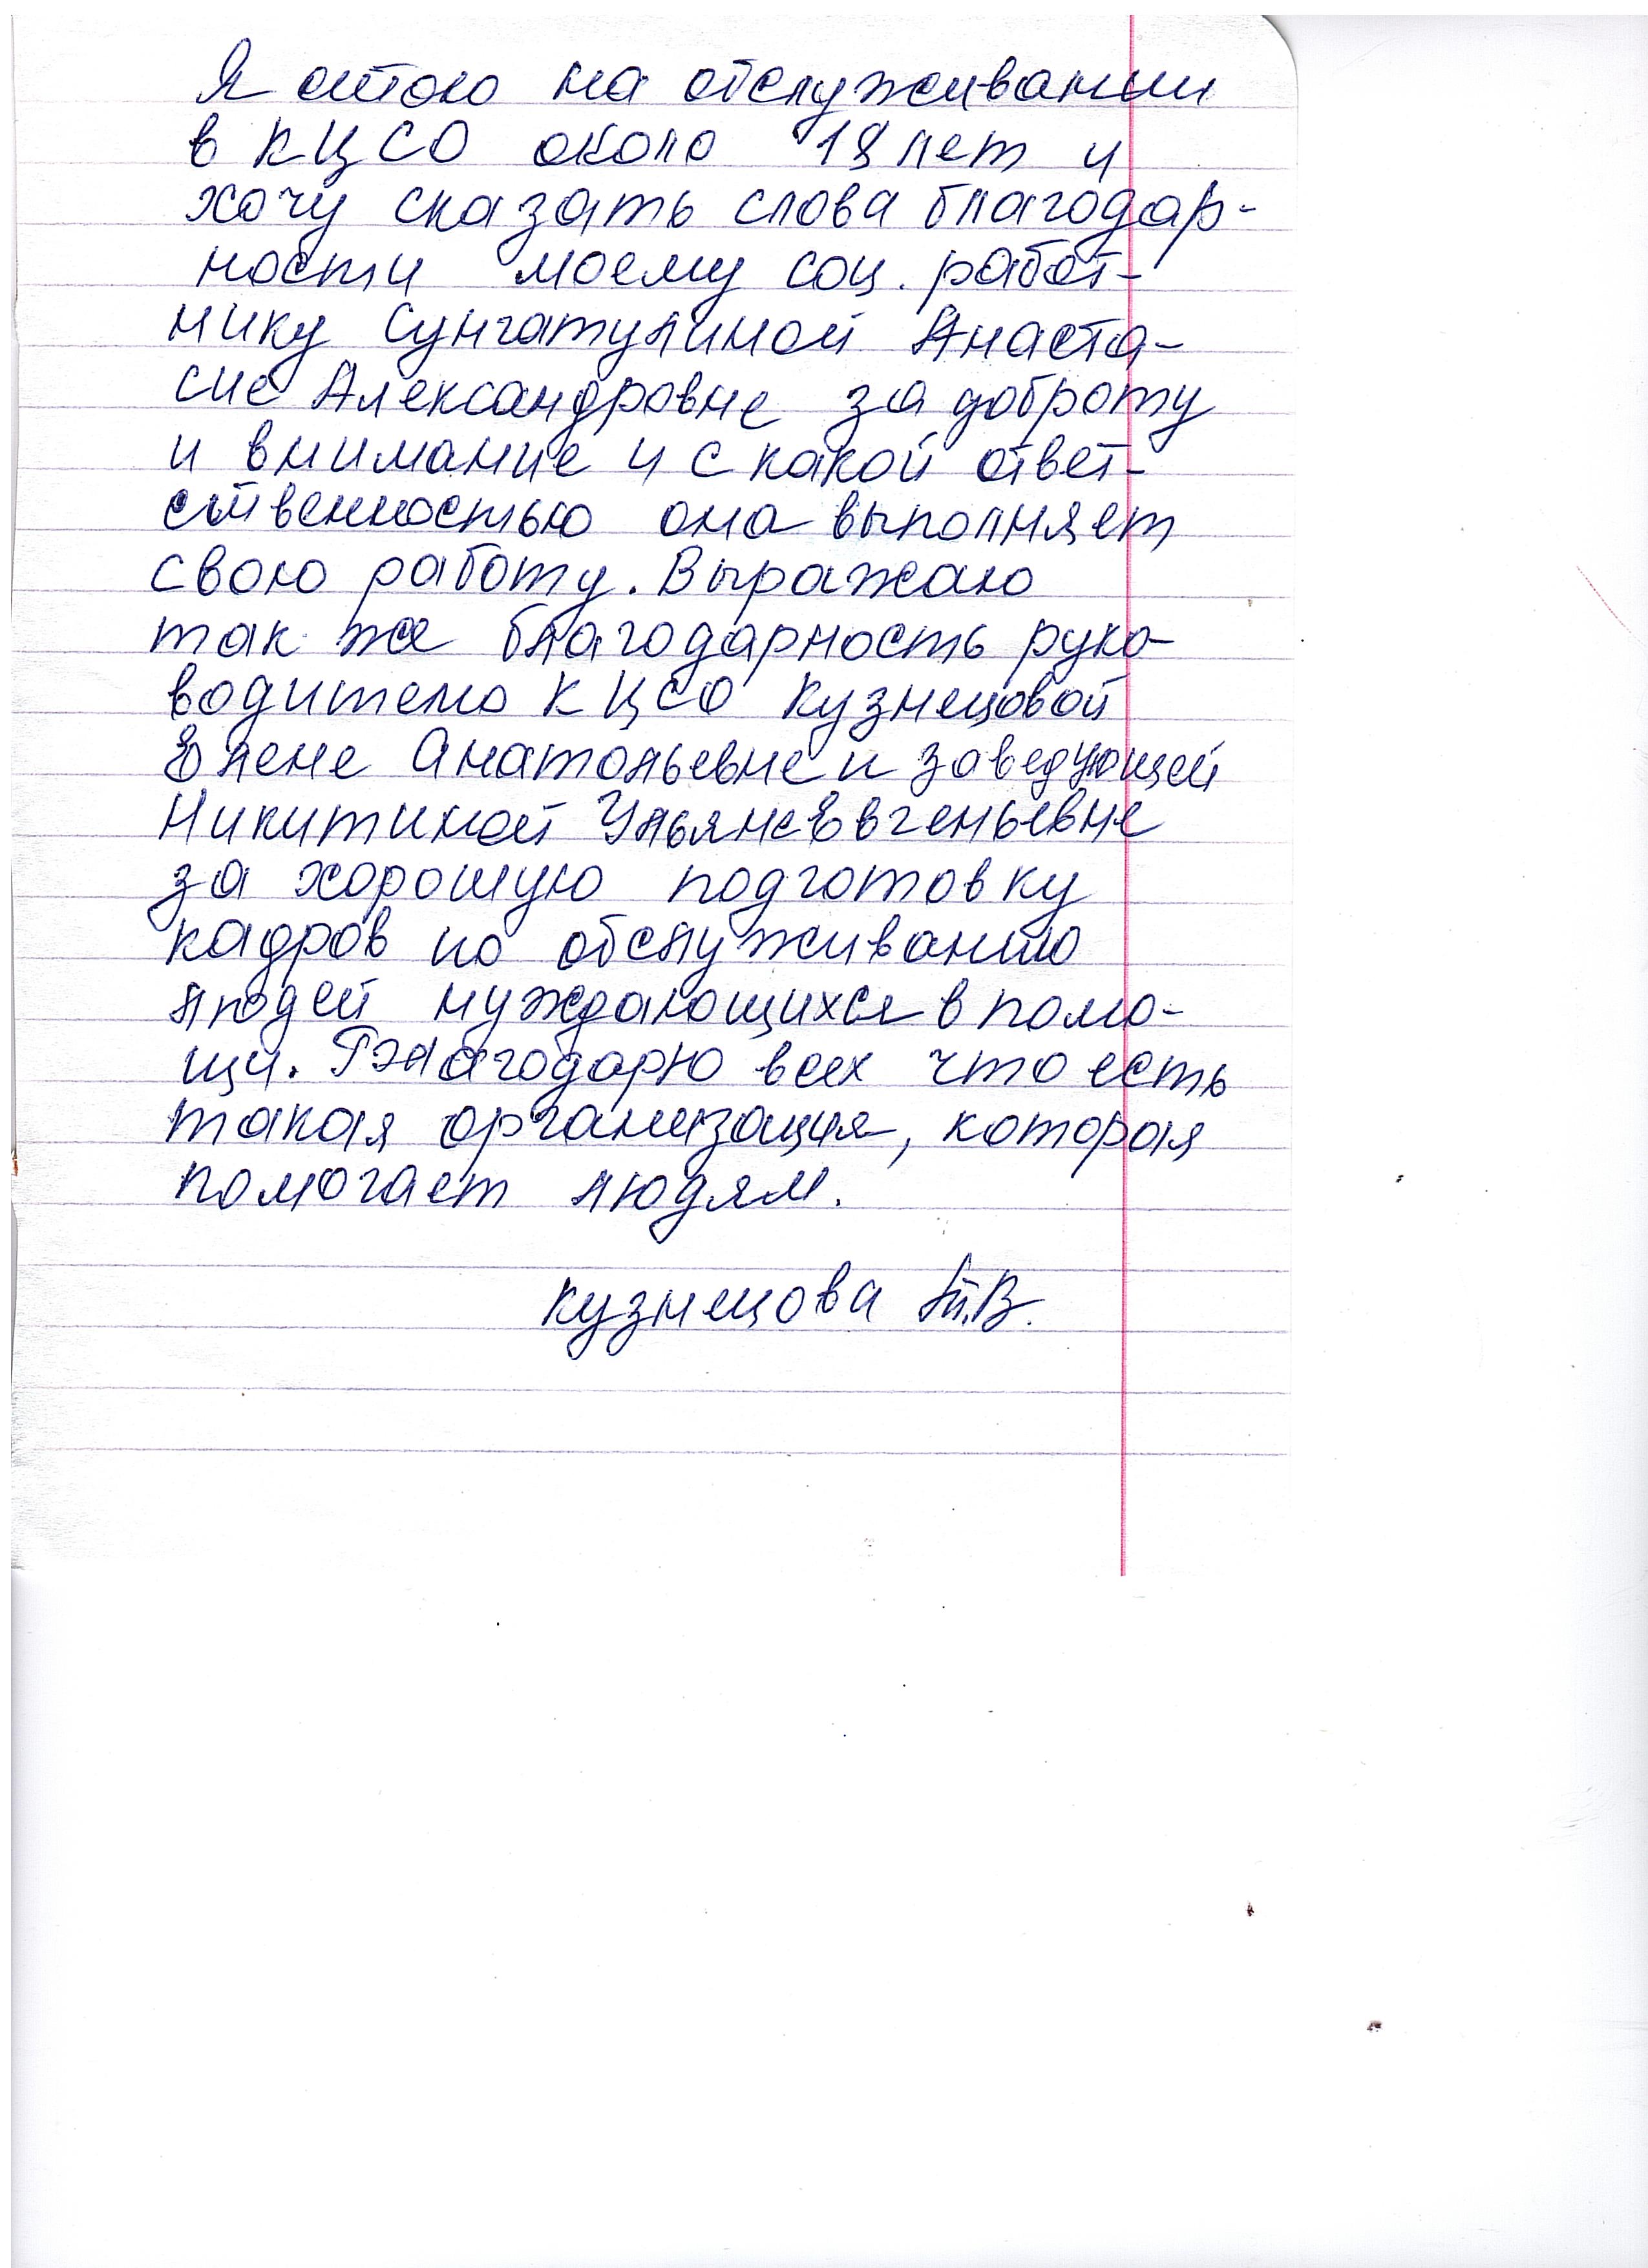 Я стою на обслуживании
в КЦСО около 18 лет и
хочу сказать слова благодар-
ности моему соц. работ-
нику Сунгатулиной Анаста-
сие Александровне за доброту
и внимание и с какой ответ-
ственностью она выполняет
свою работу. Выражаю
так же благодарность руко-
водителю КЦСО Кузнецовой
Елене Анатольевне и заведующей
Никитиной Ульяне Евгеньевне
за хорошую подготовку
кадров по обслуживанию
людей нуждающихся в помо-
щи. Благодарю всех что есть
такая организация, которая
помогает людям.
Кузнецова